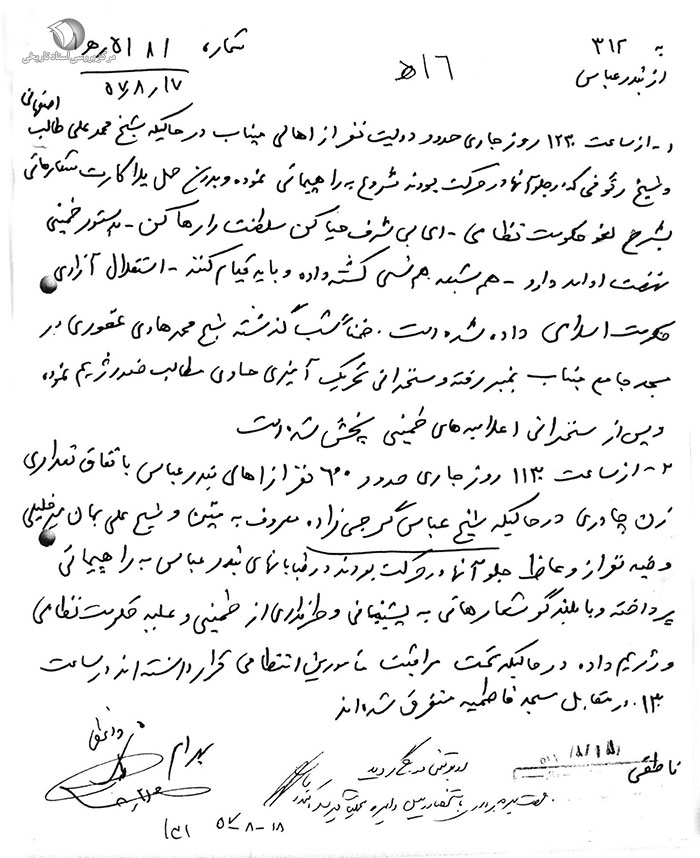 مرکز بررسی اسناد تاریخی
به ۳۱۲
از بندرعباس
شماره
۱۷ / ۸ / ۵۷
۱۶ ه
۱- از ساعت ۱۲۳۰ روز جاری حدود دویست نفر از اهالی میناب در حالیکه شیخ محمد علی طالب اصفهانی
و شیخ رئوفی که در جلو آنها در حرکت بودند شروع به راهپیمائی نموده و بدون حمل پلاکارت شعارهائی
بشرح لغو حکومت نظامی - ای بی شرف حیا کن سلطنت را رها کن - بدستور خمینی
نهضت ادامه دارد - هم شیعه هم سنی کشته داده و باید قیام کنند - استقلال آزادی
حکومت اسلامی داده شده است. ضمناً شب گذشته شیخ محمد هادی غفوری در
مسجد جامع میناب بمنبر رفته و سخنرانی تحریک آمیزی حاوی مطالب ضد رژیم نموده
و پس از سخنرانی اعلامیه های خمینی پخش شده است
۲- از ساعت ۱۱۳۰ روز جاری حدود ۶۰۰ نفر از اهالی بندرعباس باتفاق تعدادی
زن چادری در حالیکه شیخ عباس گرجی زاده معروف به متین و شیخ علی
و چند نفر از وعاظ جلو آنها در حرکت بودند در خیابانهای بندرعباس به راهپیمائی
پرداخته و با بلندگو شعارهائی به پشتیبانی و طرفداری از خمینی و علیه حکومت نظامی
و رژیم داده در حالیکه تحت مراقبت مامورین انتظامی قرار داشته اند در ساعت
۱۳۰۰ در مقابل مسجد فاطمیه متفرق شده اند
ناطقی
بهرام
۱۸-۸-۵۷